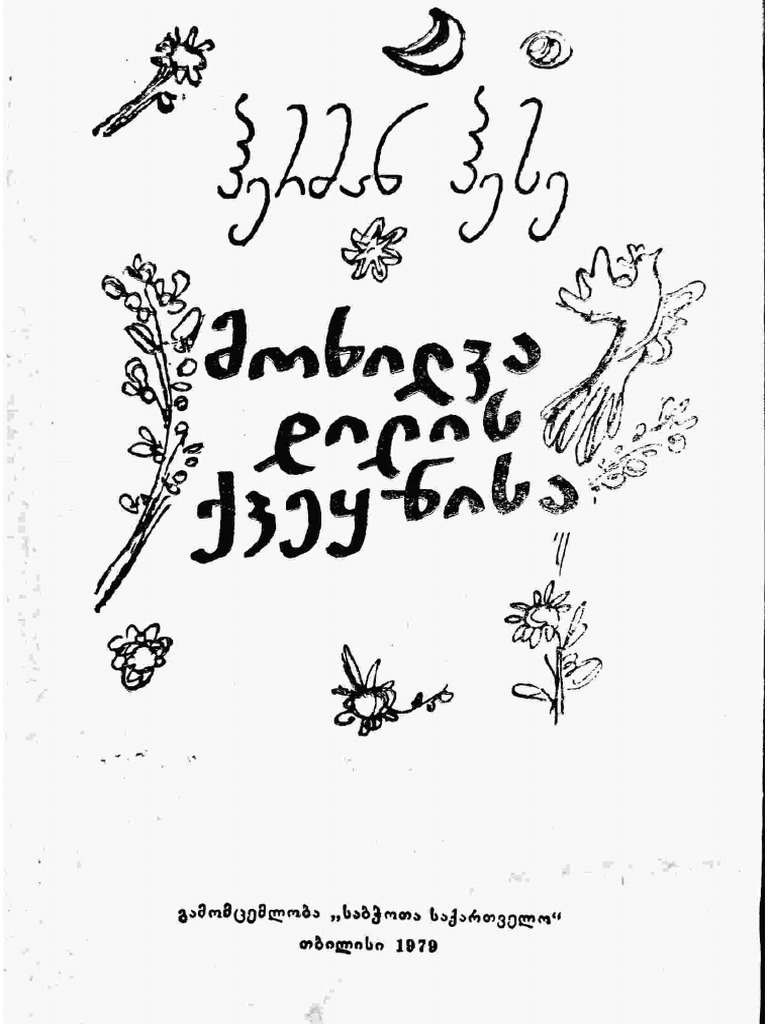 ჰერმან ჰესე
მოხილვა
დილის
ქვეყნისა
გამომცემლობა „საბჭოთა საქართველო“
თბილისი 1979